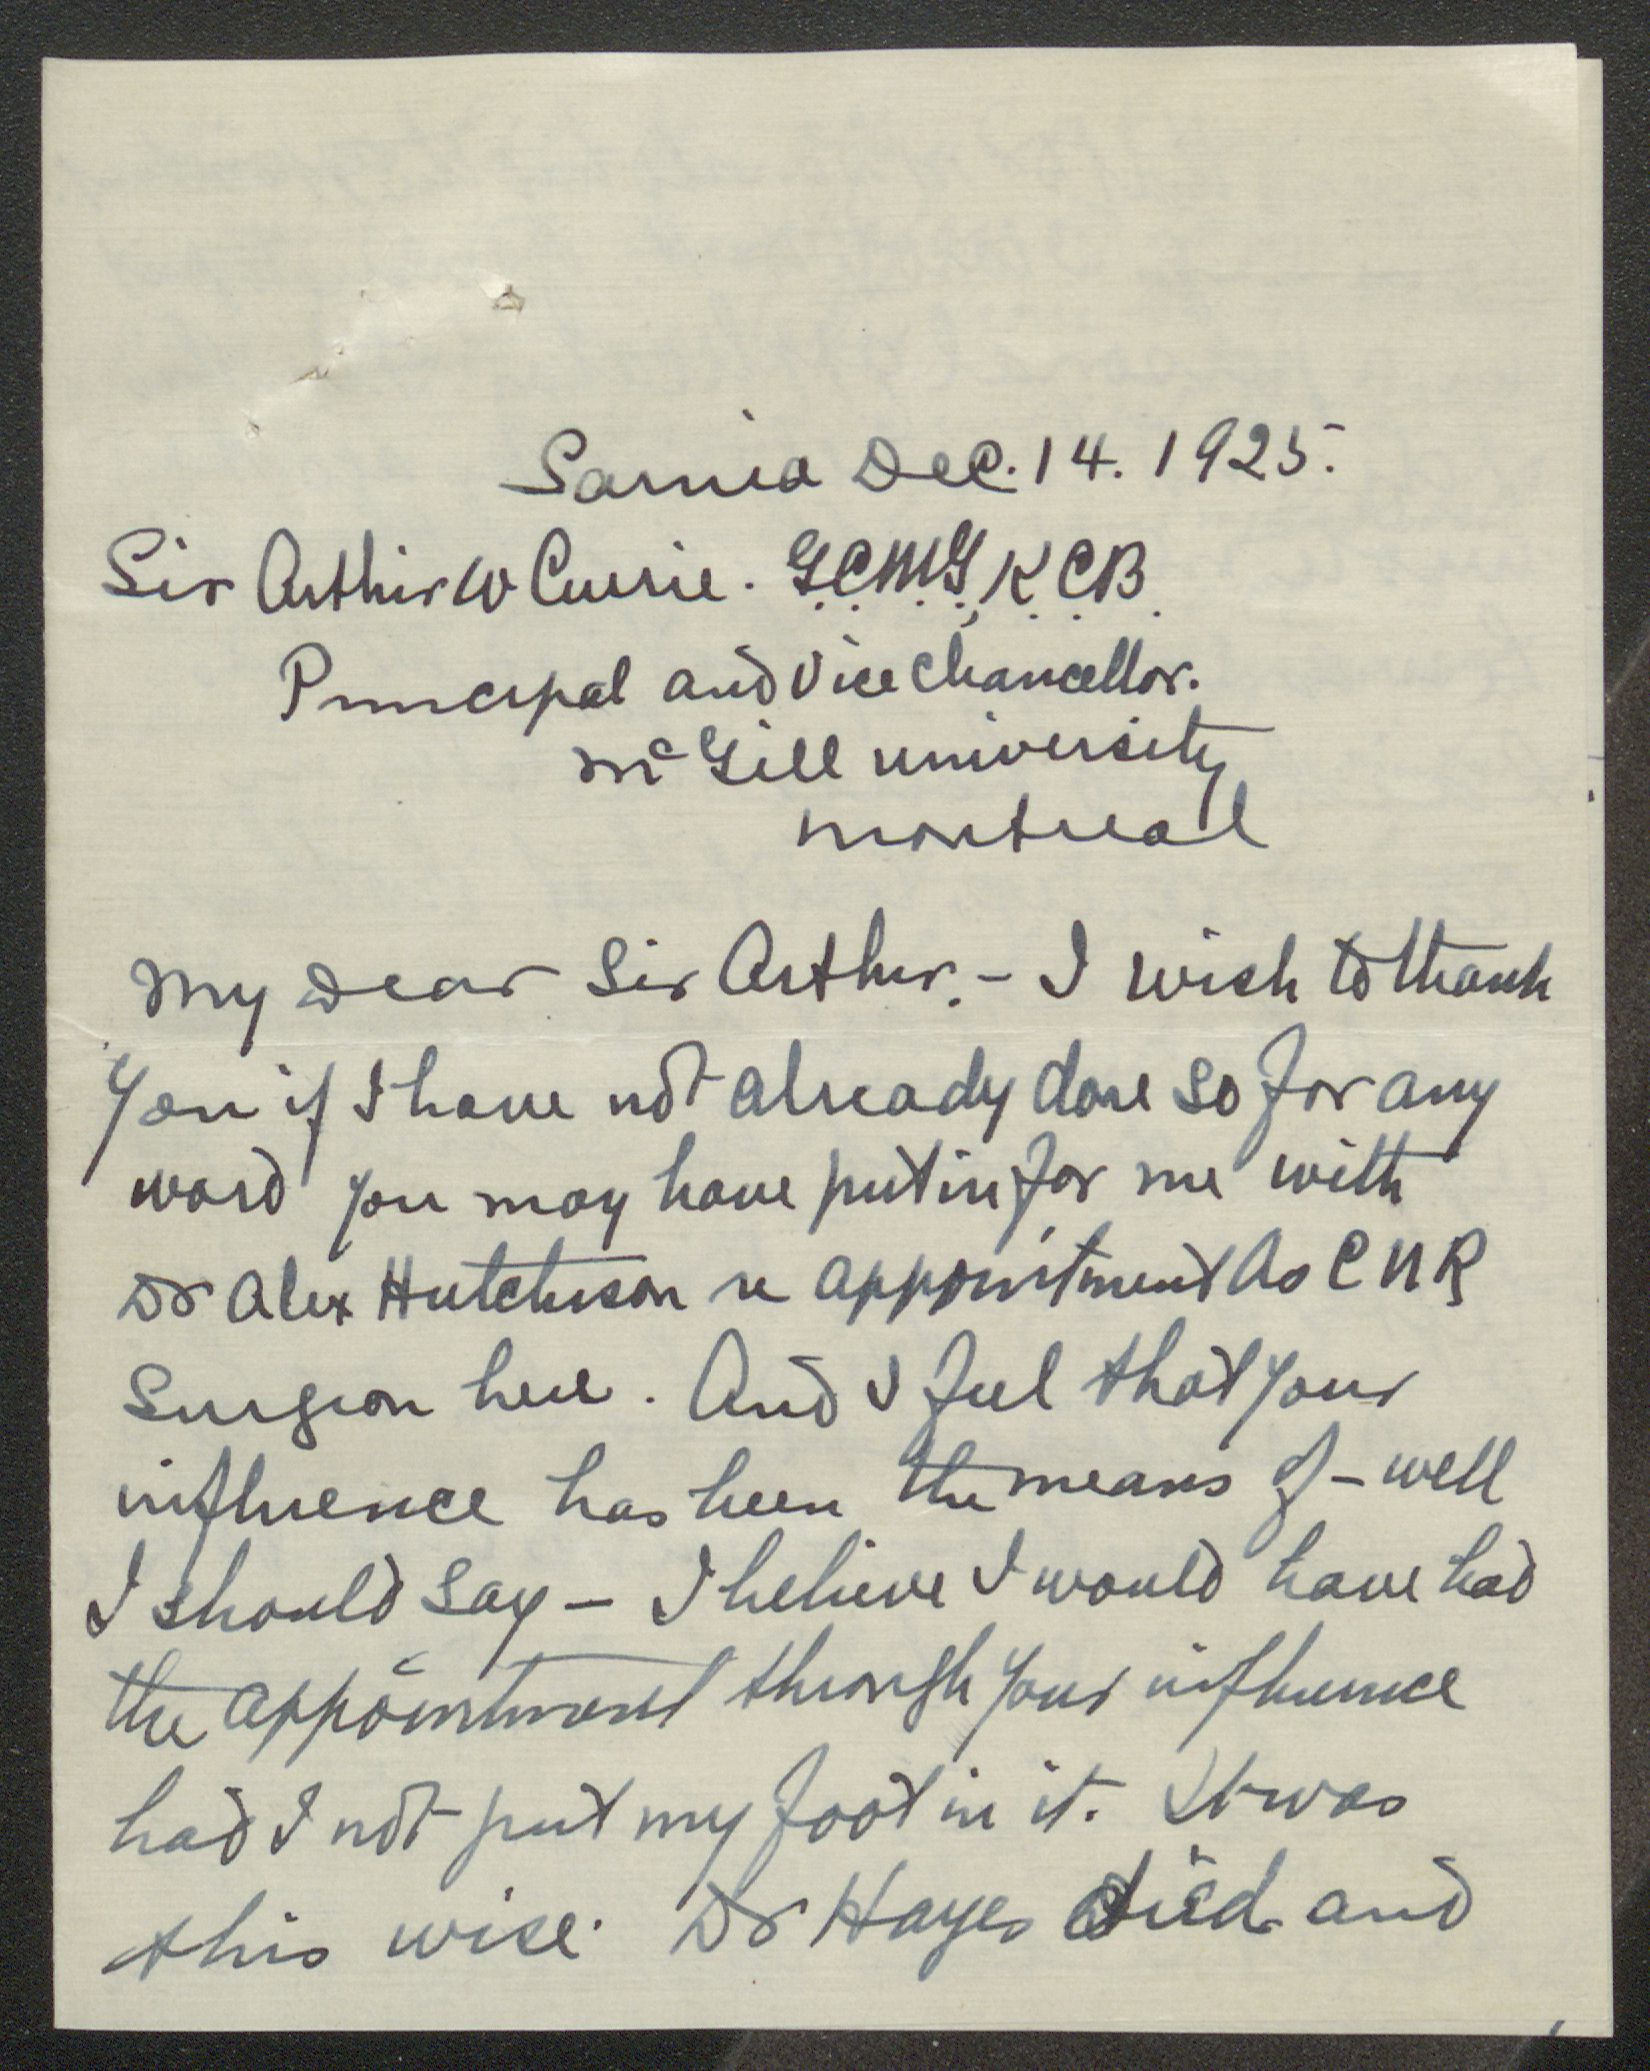 Sarnia Dec. 14. 1925.
Sir Arthur W Currie. G.C.M.G., K.C.B.
Principal and Vice Chancellor.
McGill University
Montreal
My Dear Sir Arthur. - I wish to thank
you if I have not already done so for any
word you may have put in for me with
Dr Alex Hutchison re appointment as C N R
Surgeon here. And I feel that your
influence has been the means of - well
I should say - I believe I would have had
the appointment through your influence
had I not put my foot in it. It was
this wise. Dr Hayes died and